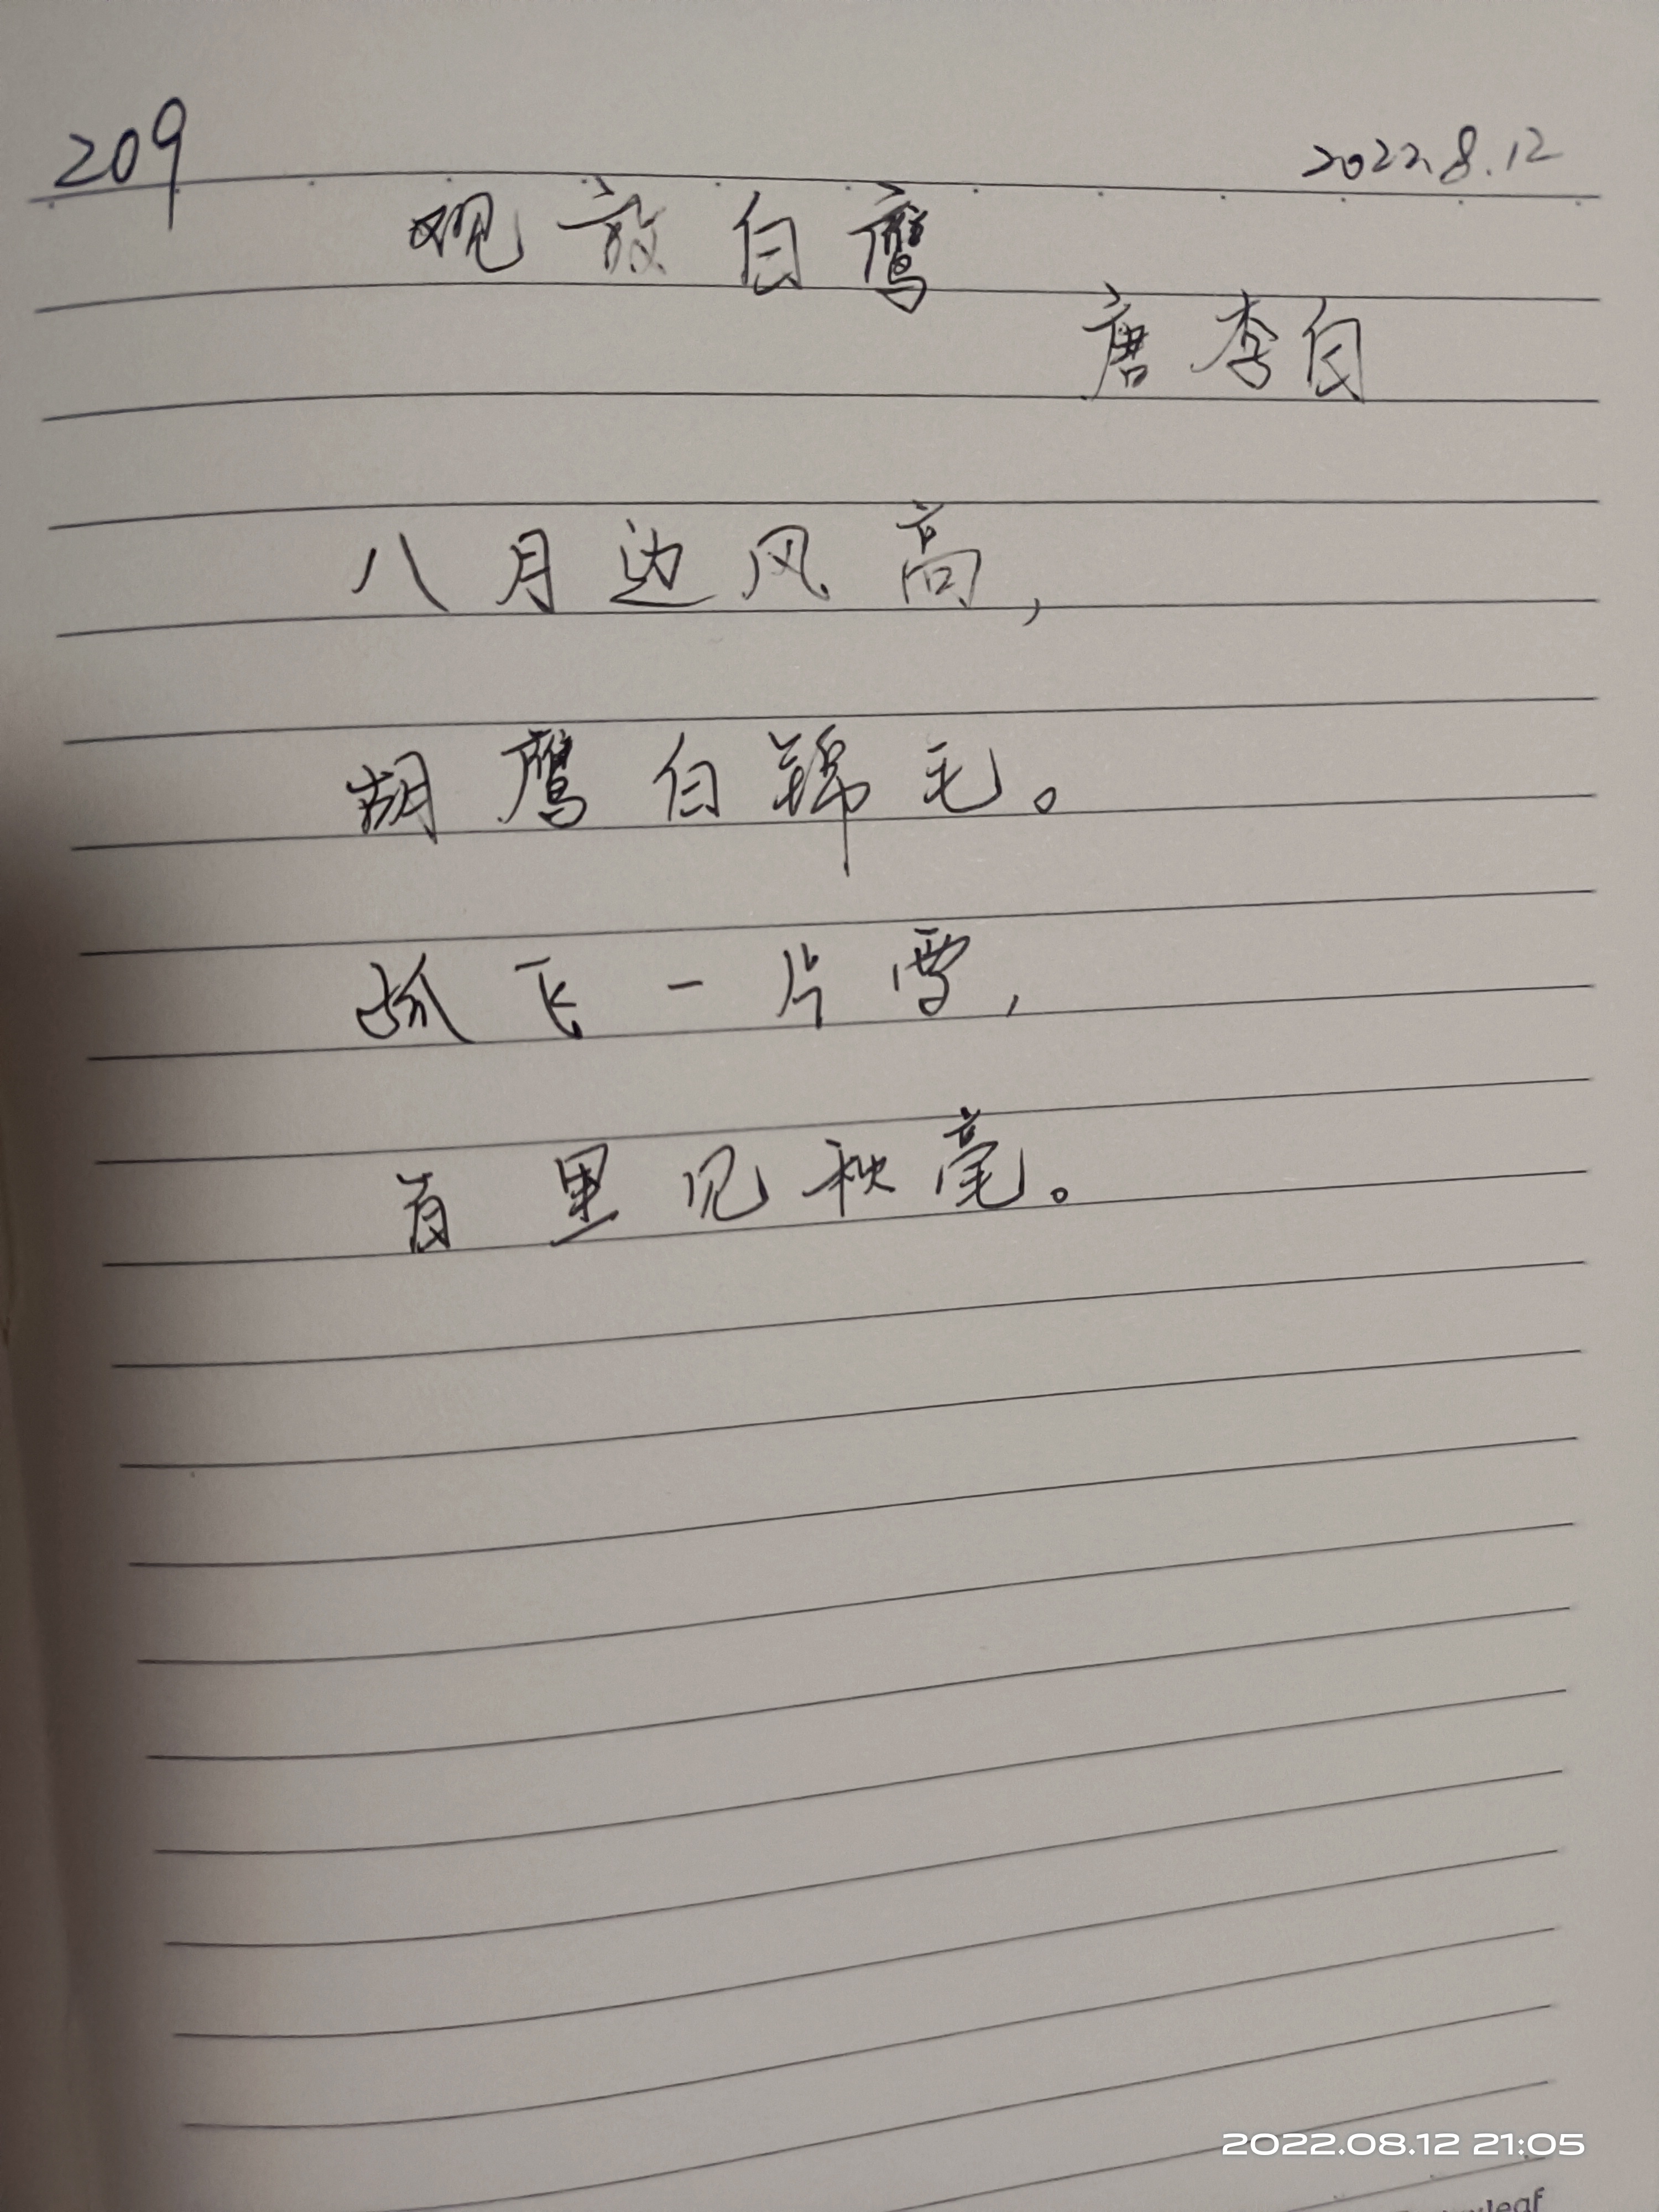 209 2022.8.12
观放白鹰
唐 李白
八月边风高,
胡鹰白锦毛。
孤飞一片雪,
百里见秋毫。
2022.08.12 21:05